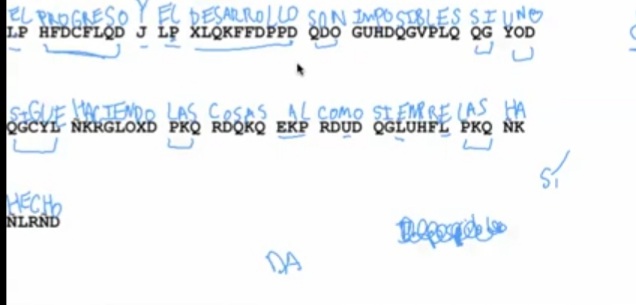 EL PROGRESO Y EL DESARROLLO SON IMPOSIBLES SI UNO
LP HFDCFLQD J LP XLQKFFDPPD QDO GUHDQGVPLQ QG YOD
SIGUE HACIENDO LAS COSAS AL COMO SIEMPRE LAS HA
QGCYL ÑKRGLOXD PKQ RDQKQ EKP RDUD QGLUHFL PKQ ÑK
SÍ
HECHO
ÑLRÑD
DA